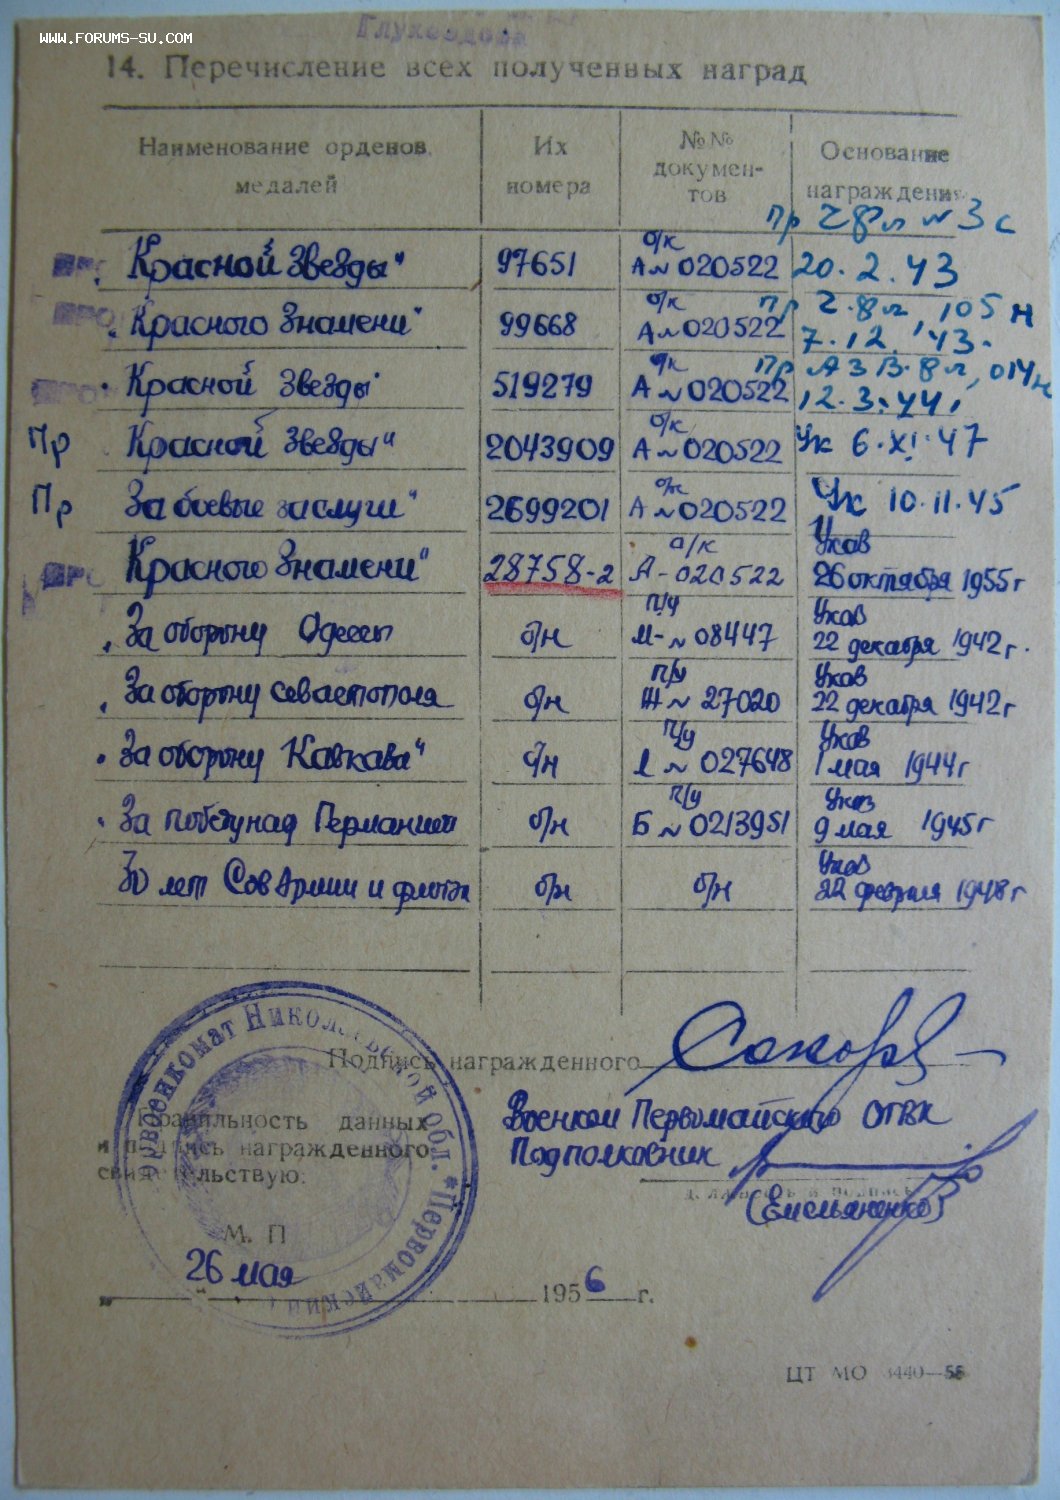 WWW.FORUMS-SU.COM
14. Перечисление всех полученных наград
Наименование орденов, медалей | Их номера | №№ документов | Основание награждения
Красной Звезды" | 97651 | о/к А № 020522 | Пр ЧФл № 3 с 20.2.43
Красного Знамени" | 99668 | о/к А № 020522 | Пр Ч.Фл, 105 н 7.12.43.
Красной Звезды" | 519279 | о/к А № 020522 | Пр АЗ В.Фл, 014 н 12.3.44,
Пр Красной Звезды" | 2043909 | о/к А № 020522 | Ук 6.XI.47
Пр За боевые заслуги" | 2699201 | о/к А № 020522 | Ук 10.11.45
Красного Знамени" | 28758-2 | о/к А-020522 | Указ 26 октября 1955 г
За оборону Одессы | б/н | п/у М-№ 08447 | Указ 22 декабря 1942 г.
За оборону Севастополя | б/н | п/у Ж № 27020 | Указ 22 декабря 1942 г
За оборону Кавказа" | б/н | п/у Л № 027648 | Указ 1 мая 1944 г
За победу над Германией | б/н | п/у Б № 0213951 | Указ 9 мая 1945 г
30 лет Сов Армии и флота | б/н | б/н | Указ 22 февраля 1948 г
Подпись награжденного
Правильность данных
и подпись награжденного
свидетельствую:
Военком Первомайского ОГВК
Подполковник
должность и подпись
(Емельяненко)
М. П
26 мая 1956 г.
Николаевской обл. * Первомайский
ЦТ МО 3440—55